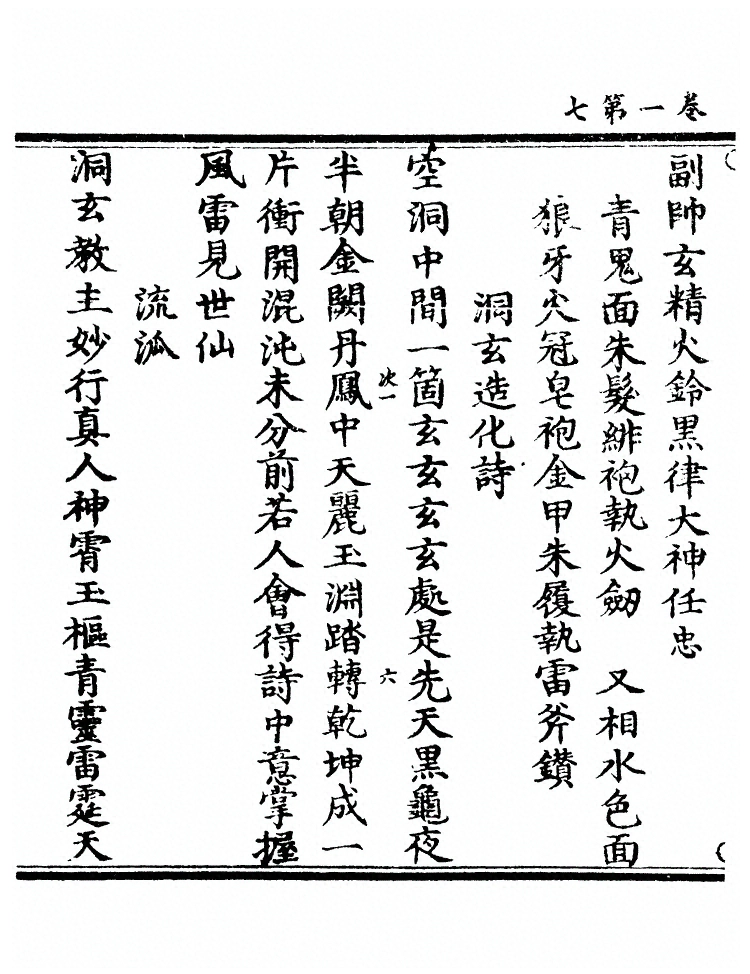 卷一第七
副帥玄精火鈴黑律大神任忠
青鬼面朱髮緋袍執火劒　又相水色面
狼牙火冠皂袍金甲朱履執雷斧鑽
洞玄造化詩
空洞中間一箇玄玄玄玄處是先天黑龜夜
次一
六
半朝金闕丹鳳中天麗玉淵踏轉乾坤成一
片衝開混沌未分前若人會得詩中意掌握
風雷見世仙
流派
洞玄教主妙行真人神霄玉樞青靈雷霆天